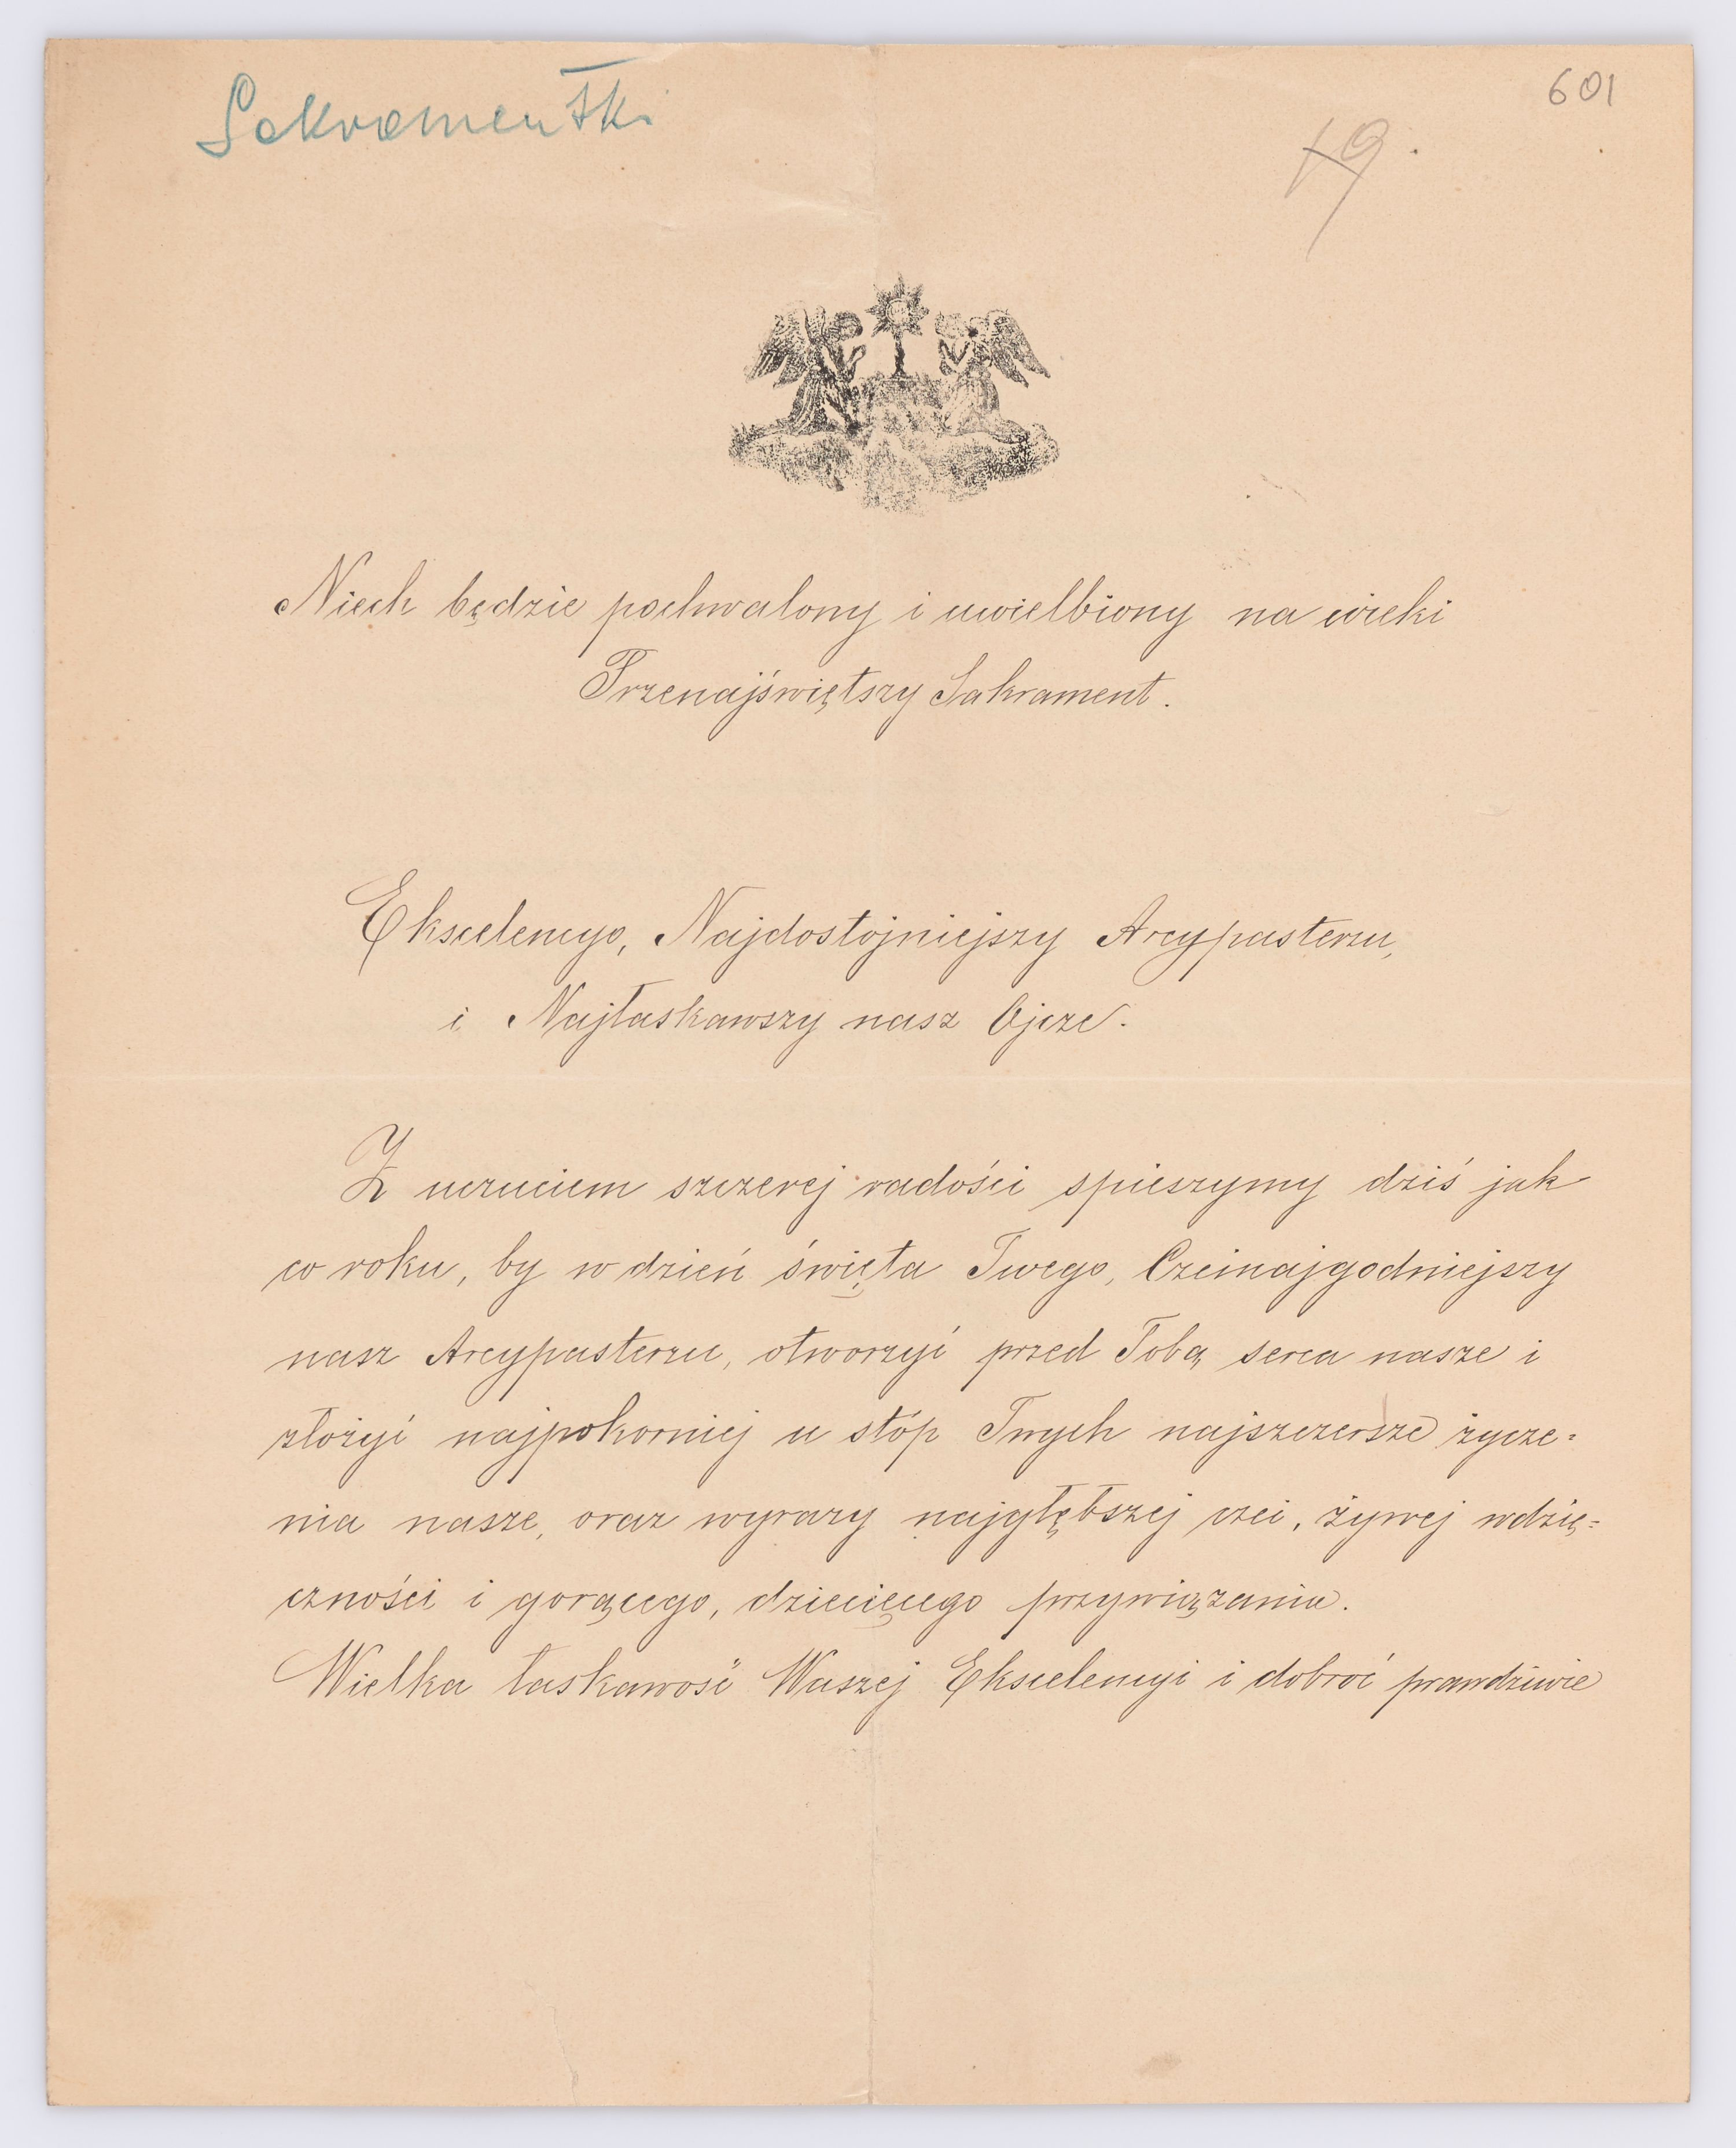 Sakramentki
601
19.
Niech będzie pochwalony i uwielbiony na wieki
Przenajświętszy Sakrament.
Ekscelencyo, Najdostojniejszy Arcypasterzu,
i Najłaskawszy nasz Ojcze.
Z uczuciem szczerej radości spieszymy dziś jak
co roku, by w dzień święta Twego, Czcinajgodniejszy
nasz Arcypasterzu, otworzyć przed Tobą serca nasze i
złożyć najpokorniej u stóp Twych najszczersze życze=
nia nasze, oraz wyrazy najgłębszej czci, żywej wdzię=
czności i gorącego, dziecięcego przywiązania.
Wielka łaskawość Waszej Ekscelencyi i dobroć prawdziwie